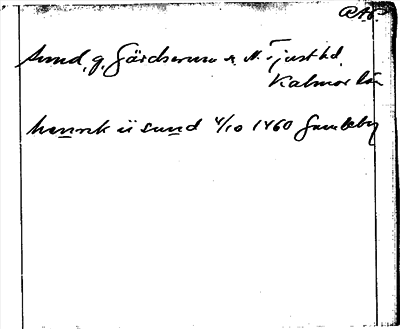 RAp
Sund, g. Gärdserum s. N. Tjust hd.
Kalmar län
henrik ii sund 4/10 1460 Gamleby